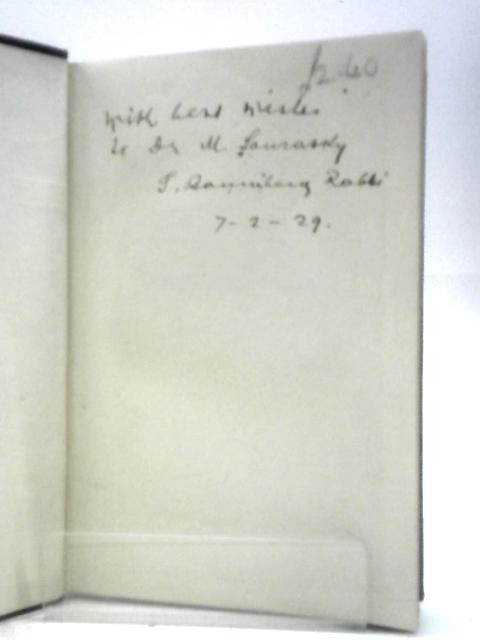 £2.40
with best wishes
to Dr M. Sourasky
Rabbi
7-2-29.